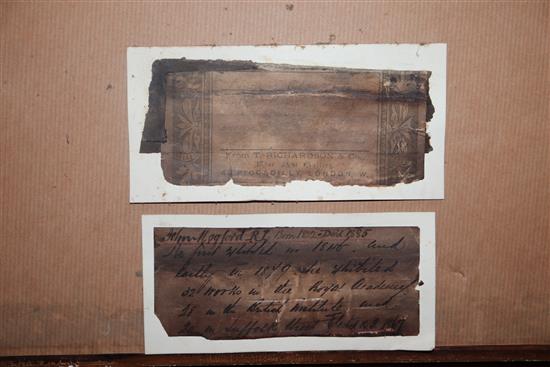 From T. RICHARDSON & Co.
Fine Art
43 PICCADILLY, LONDON, W.
John Mogford R.I. Born 1821 - Died 1885
He first exhibited in and
lastly in He exhibited
32 works in the Royal Academy
28 in the British Institute and
20 in Suffolk Street